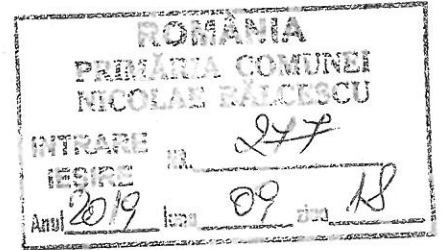 ROMÂNIA
PRIMĂRIA COMUNEI
NICOLAE BĂLCESCU
INTRARE
IEȘIRE NR. 277
Anul 2019 luna 09 ziua 18